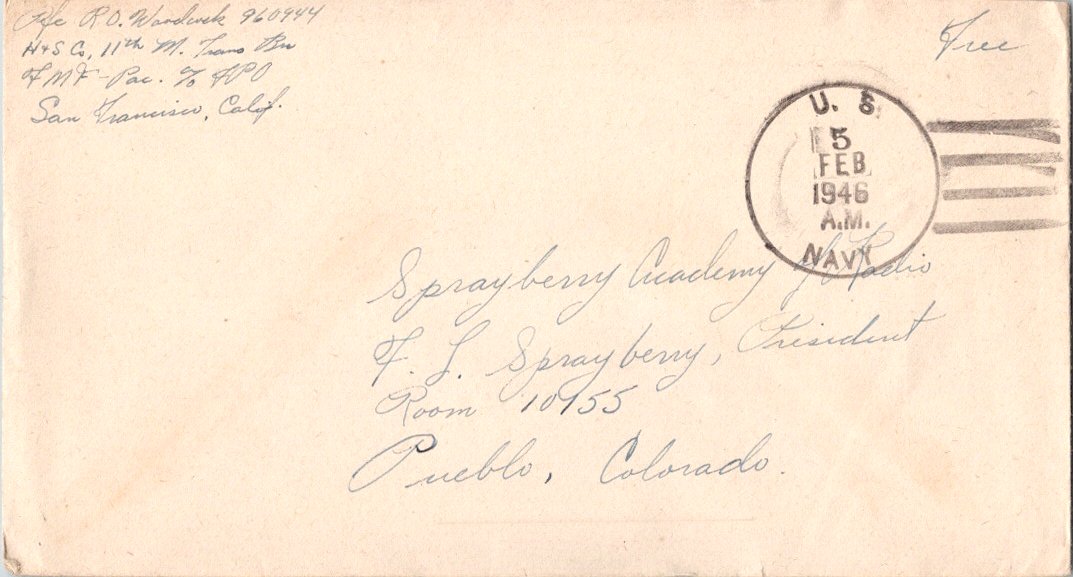 Pfc R.O. Woodcock 960944
H+S Co, 11th M. Trans Bn
FMF-Pac. % FPO
San Francisco, Calif.
Free
U. S.
5
FEB
1946
A.M.
NAVY
Sprayberry Academy of Radio
F. L. Sprayberry, President
Room 10155
Pueblo, Colorado.